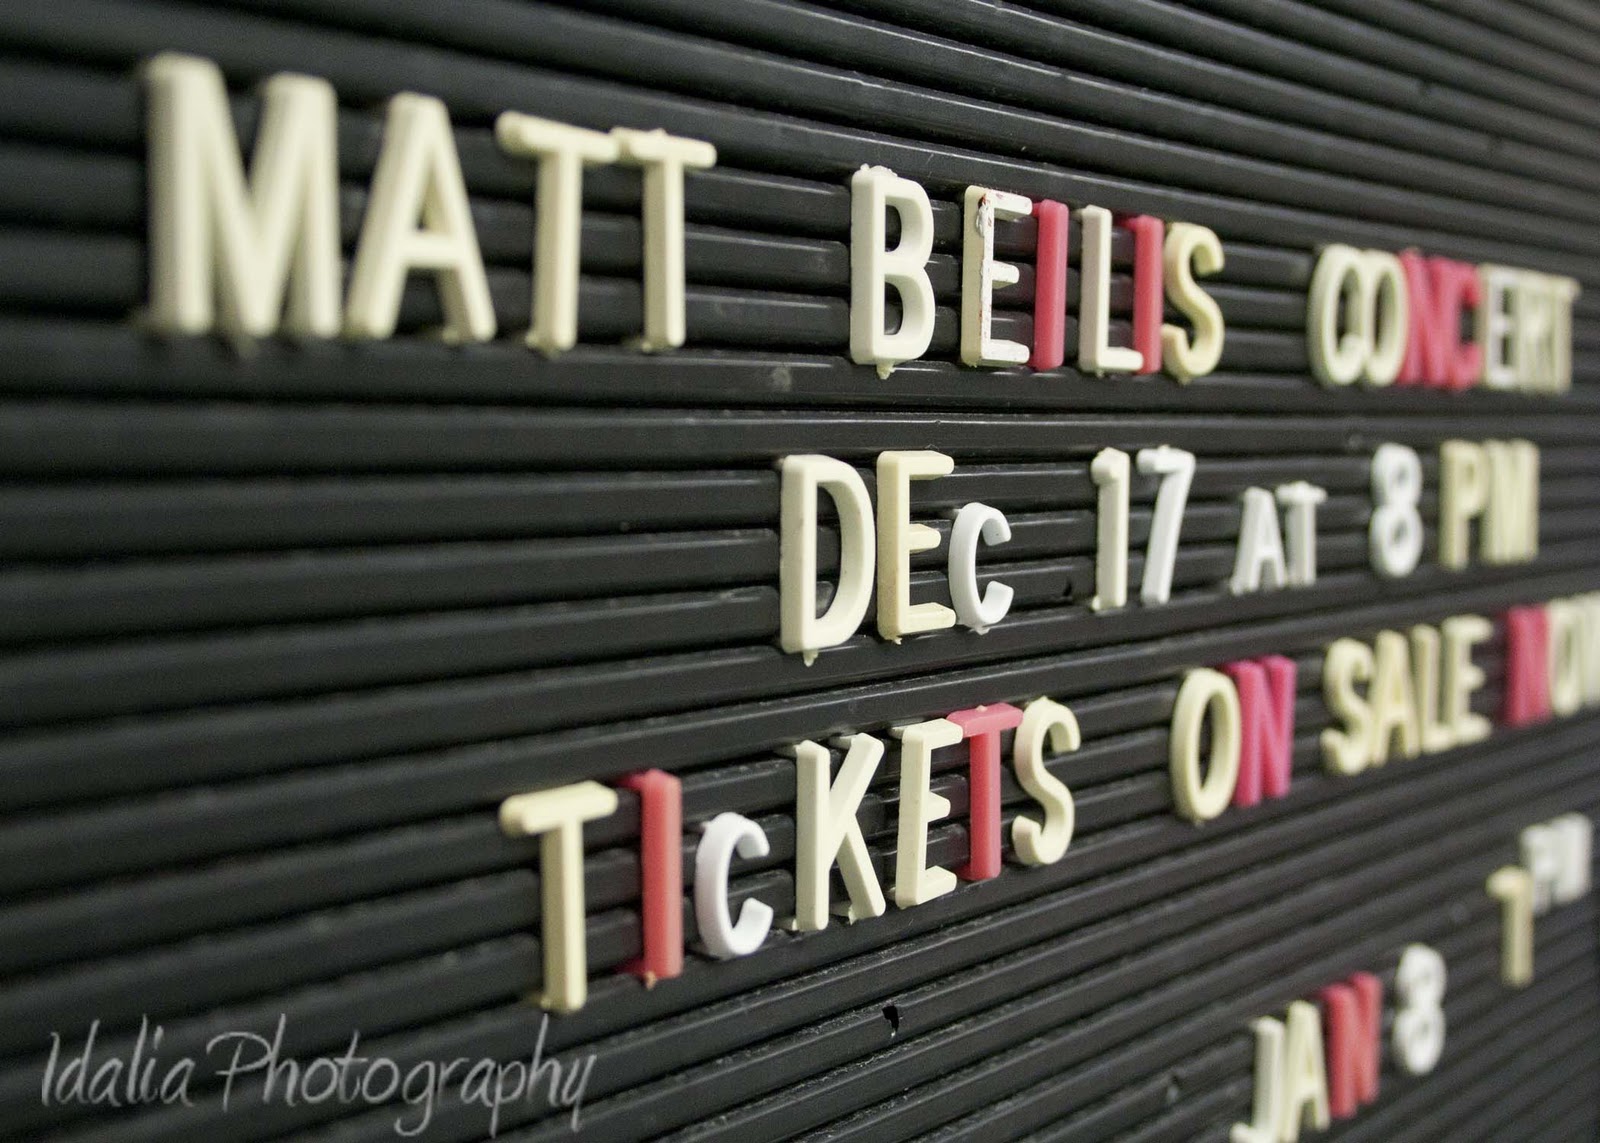 MATT BEILIS CONCERT
DEC 17 AT 8 PM
TICKETS ON SALE NOW
JAN 8 1PM
Idalia Photography